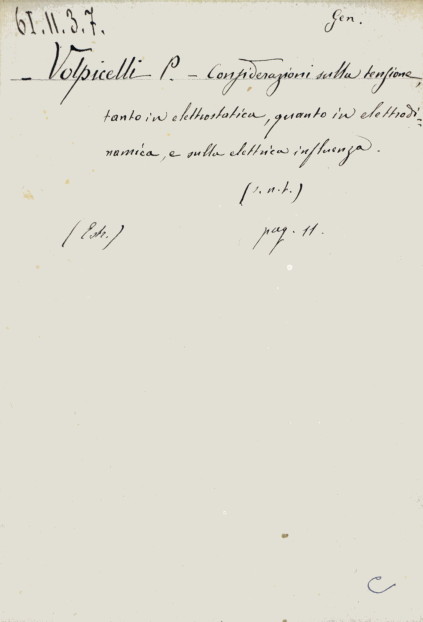 61.11.3.7.
Gen.
- Volpicelli P. - Considerazioni sulla tensione,
tanto in elettrostatica, quanto in elettrodi-
namica, e sulla elettrica influenza.
(s.n.t.)
(Estr.) pag. 11.
C